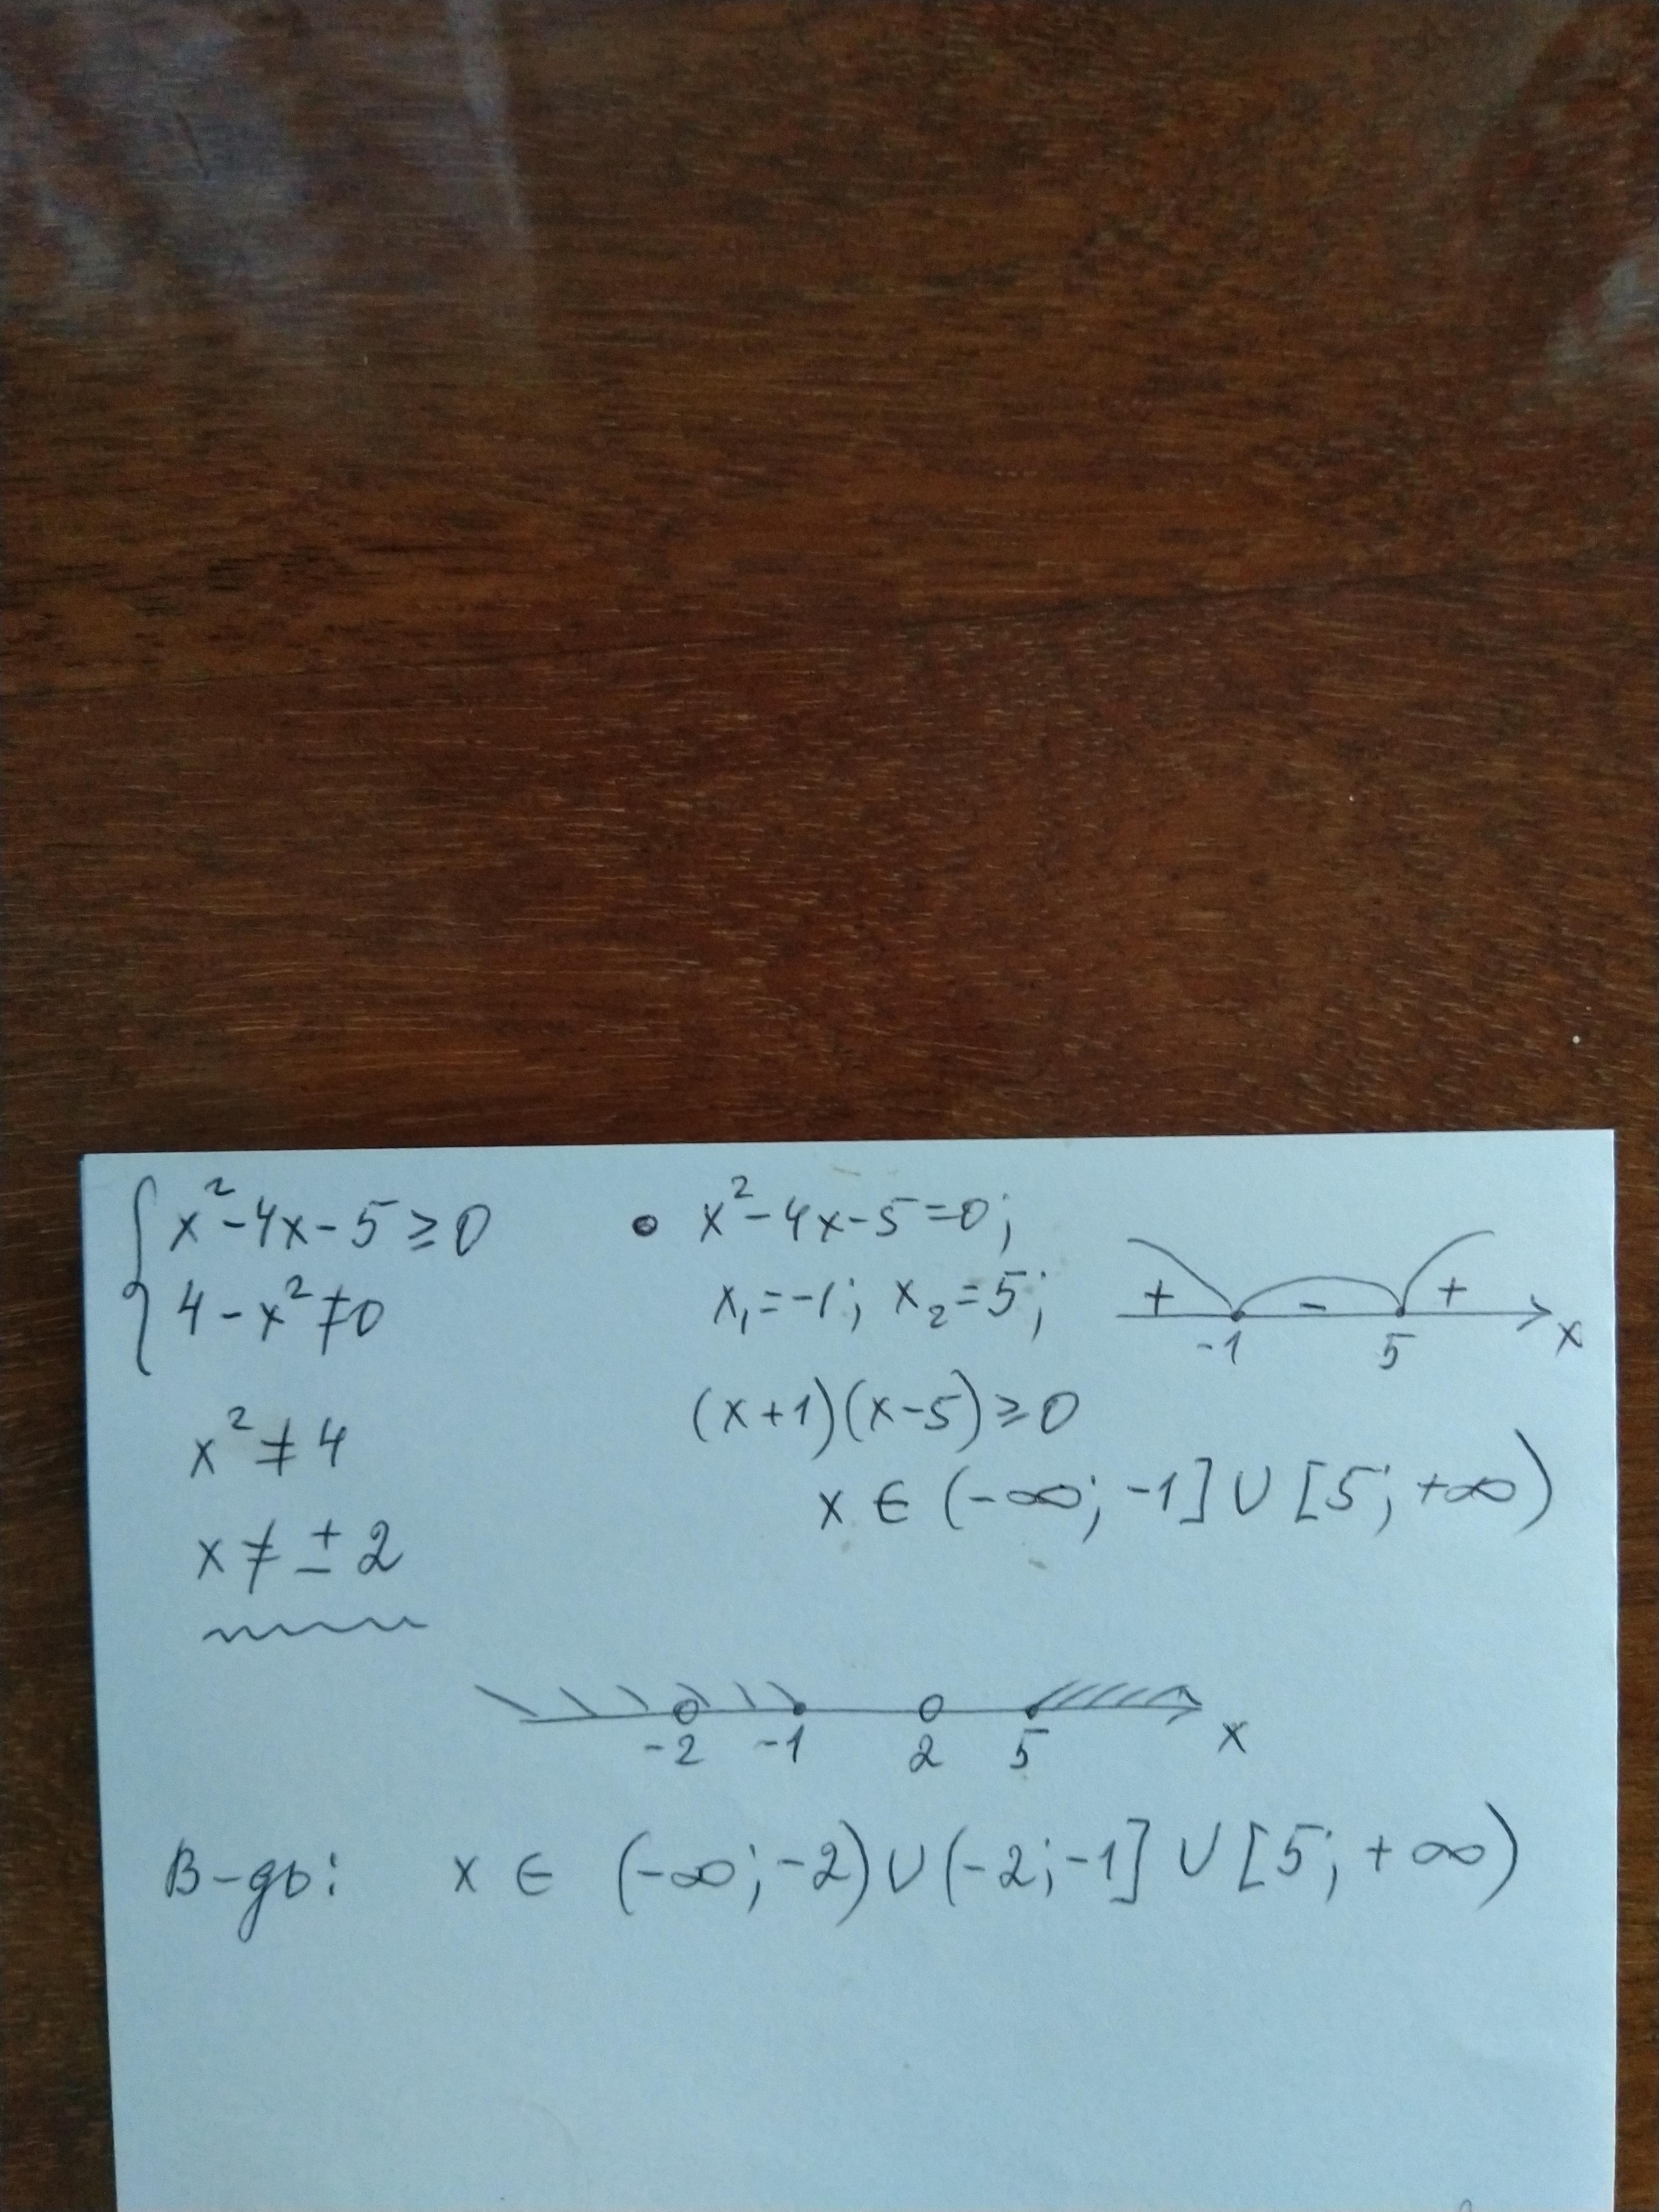 { x² - 4x - 5 ≥ 0
4 - x² ≠ 0
x² ≠ 4
x ≠ ± 2
• x² - 4x - 5 = 0;
x₁ = -1; x₂ = 5;
+ - +
-1 5 x
(x+1)(x-5) ≥ 0
x ∈ (-∞; -1] ∪ [5; +∞)
-2 -1 2 5 x
В-дь: x ∈ (-∞; -2) ∪ (-2; -1] ∪ [5; +∞)